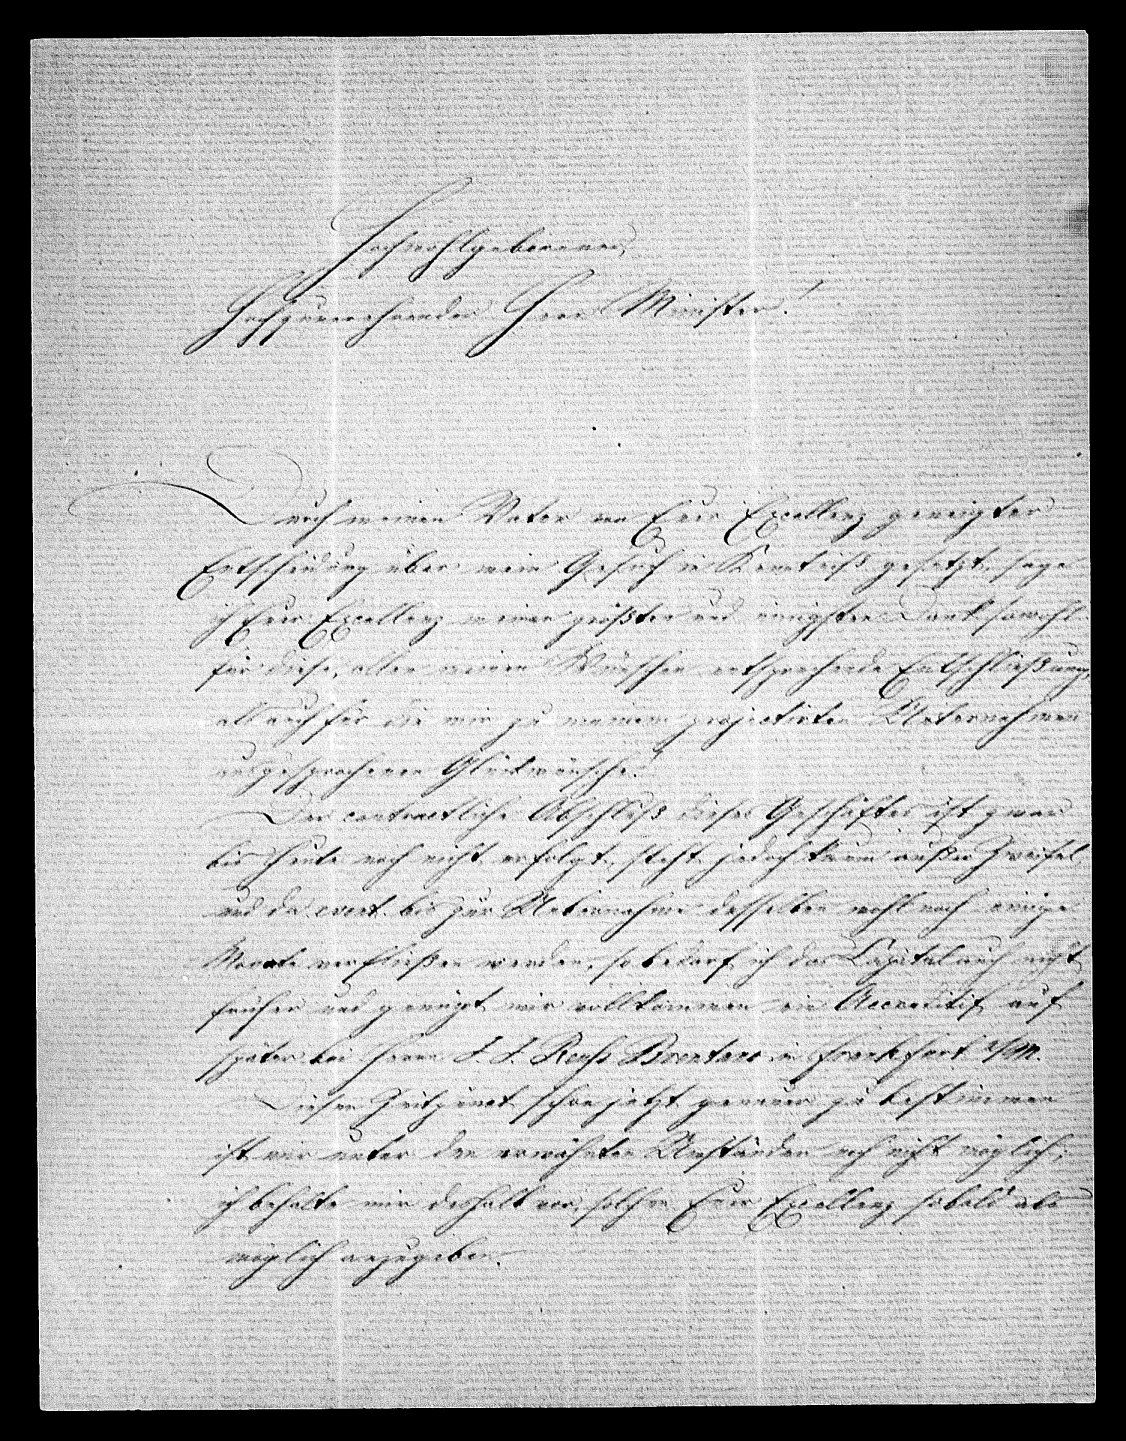 Hochwohlgeborener,
Hochzuverehrender Herr Minister!
Durch meinen Vater von Euer Excellenz geneigter
Entscheidung über mein Gesuch in Kenntniß gesetzt, sage
ich Euer Excellenz meinen größten und innigsten Dank sowohl
für diese, allen meinen Wünschen entsprechende Entschließung,
als auch für die mir zu meinem projectirten Unternehmen
ausgesprochenen Glückwünsche!
Der contractliche Abschluß dieses Geschäftes ist zwar
bis heute noch nicht erfolgt, steht jedoch kaum außer Zweifel
und da event. bis zur Uebernahme desselben wohl noch einige
Monate verfließen werden, so bedarf ich das Capital auch nicht
früher und genügt mir vollkommen ein Accreditif auf
später bei Herrn J. J. Brentano in Frankfurt a/M.
Diesen Zeitpunct schon jetzt genauer zu bestimmen
ist mir unter den erwähnten Umständen noch nicht möglich;
ich behalte mir deshalb vor, solchen Euer Excellenz sobald als
möglich anzugeben.